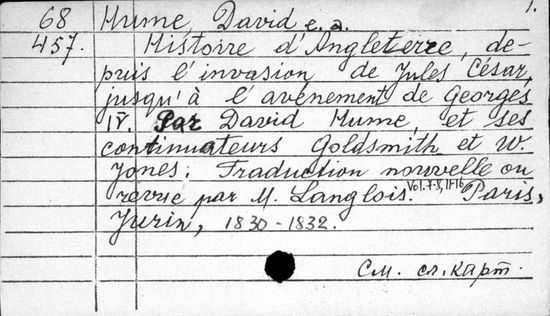 1.
68 Hume, David e. a.
457. Histoire d'Angleterre, de-
puis l'invasion de Jules César,
jusqu'à l'avénement de Georges
IV. Par David Hume, et ses
continuateurs Goldsmith et W.
Jones. Traduction nouvelle ou
revue par M. Langlois. Vol. 7-8, 11-16 Paris,
Yurin, 1830-1832.
См. сл. карт.